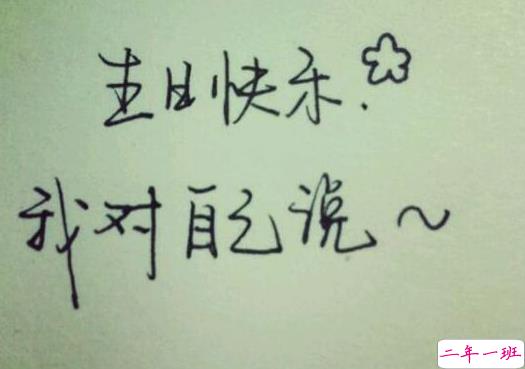 生日快乐.
我对自己说~
二年一班